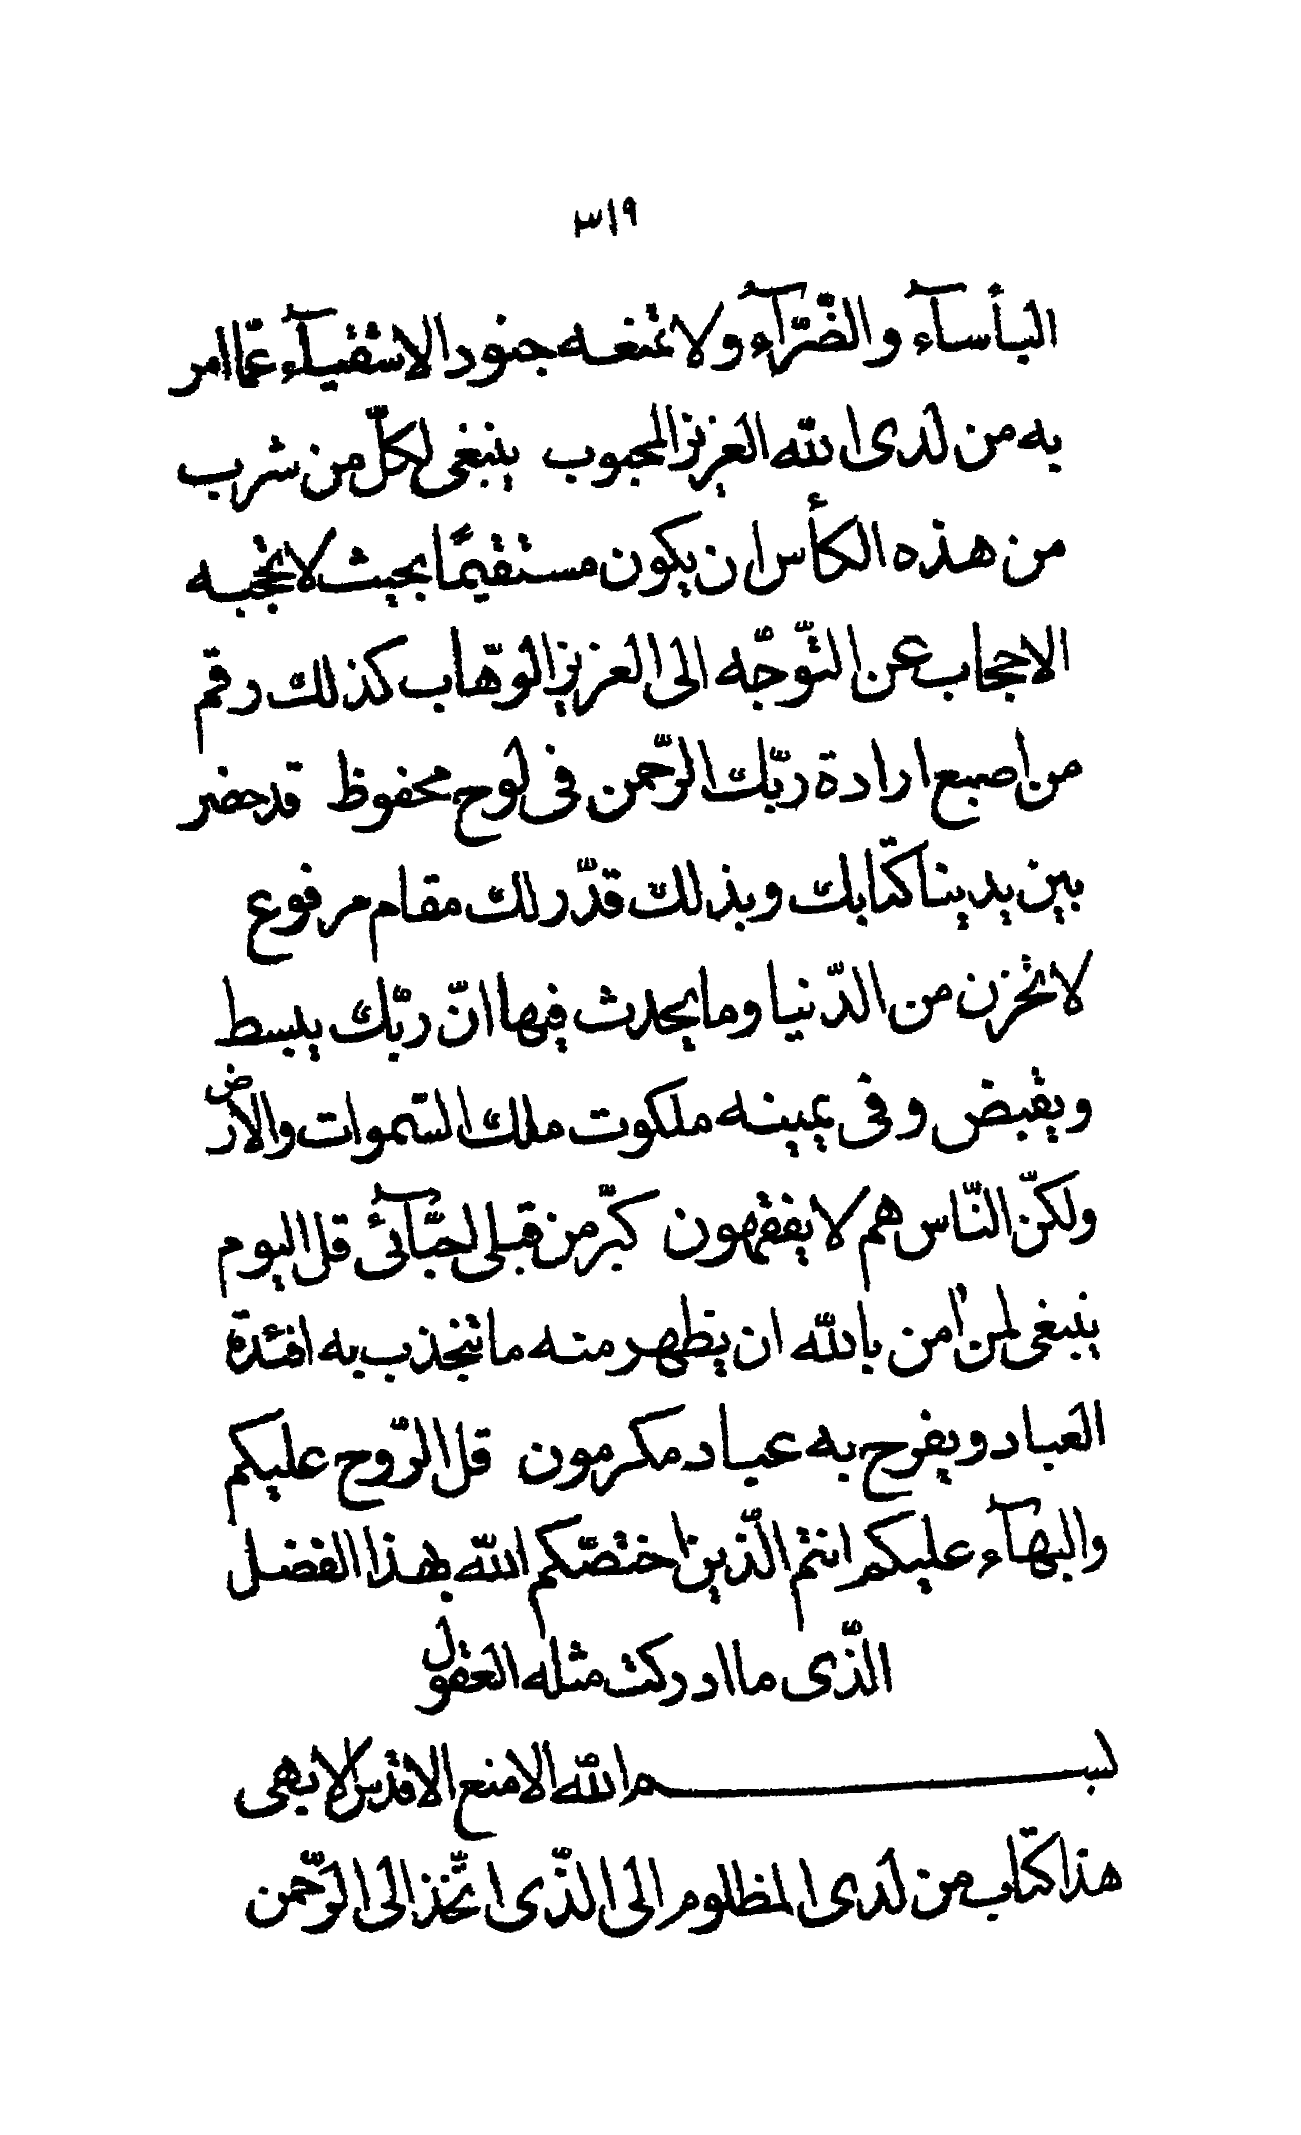 ٣١٩
البأسآء والضّرّآء ولا تمنعه جنود الاشقيآء عمّا امر
به من لدی الله العزيز المحبوب ينبغی لكلّ من شرب
من هذه الكأس ان يكون مستقيمًا بحيث لا تحجبه
الاحجاب عن التّوجّه الی العزيز الوهّاب كذلك رقم
من اصبع ارادة ربّك الرّحمن فی لوح محفوظ قد حضر
بين يدينا كتابك وبذلك قدّر لك مقام مرفوع
لا تحزن من الدّنيا وما يحدث فيها انّ ربّك يبسط
ويقبض وفی يمينه ملكوت ملك السّموات والارض
ولكنّ النّاس هم لا يفقهون كبّر من قبلی احبّآئی قل اليوم
ينبغی لمن اٰمن بالله ان يظهر منه ما تنجذب به افئدة
العباد ويفرح به عباد مكرمون قل الرّوح عليكم
والبهآء عليكم انتم الّذين اختصّكم الله بهذا الفضل
الّذی ما ادركت مثله العقول
بسم الله الامنع الاقدس الابهی
هذا كتاب من لدی المظلوم الی الّذی اتّخذ الی الرّحمن